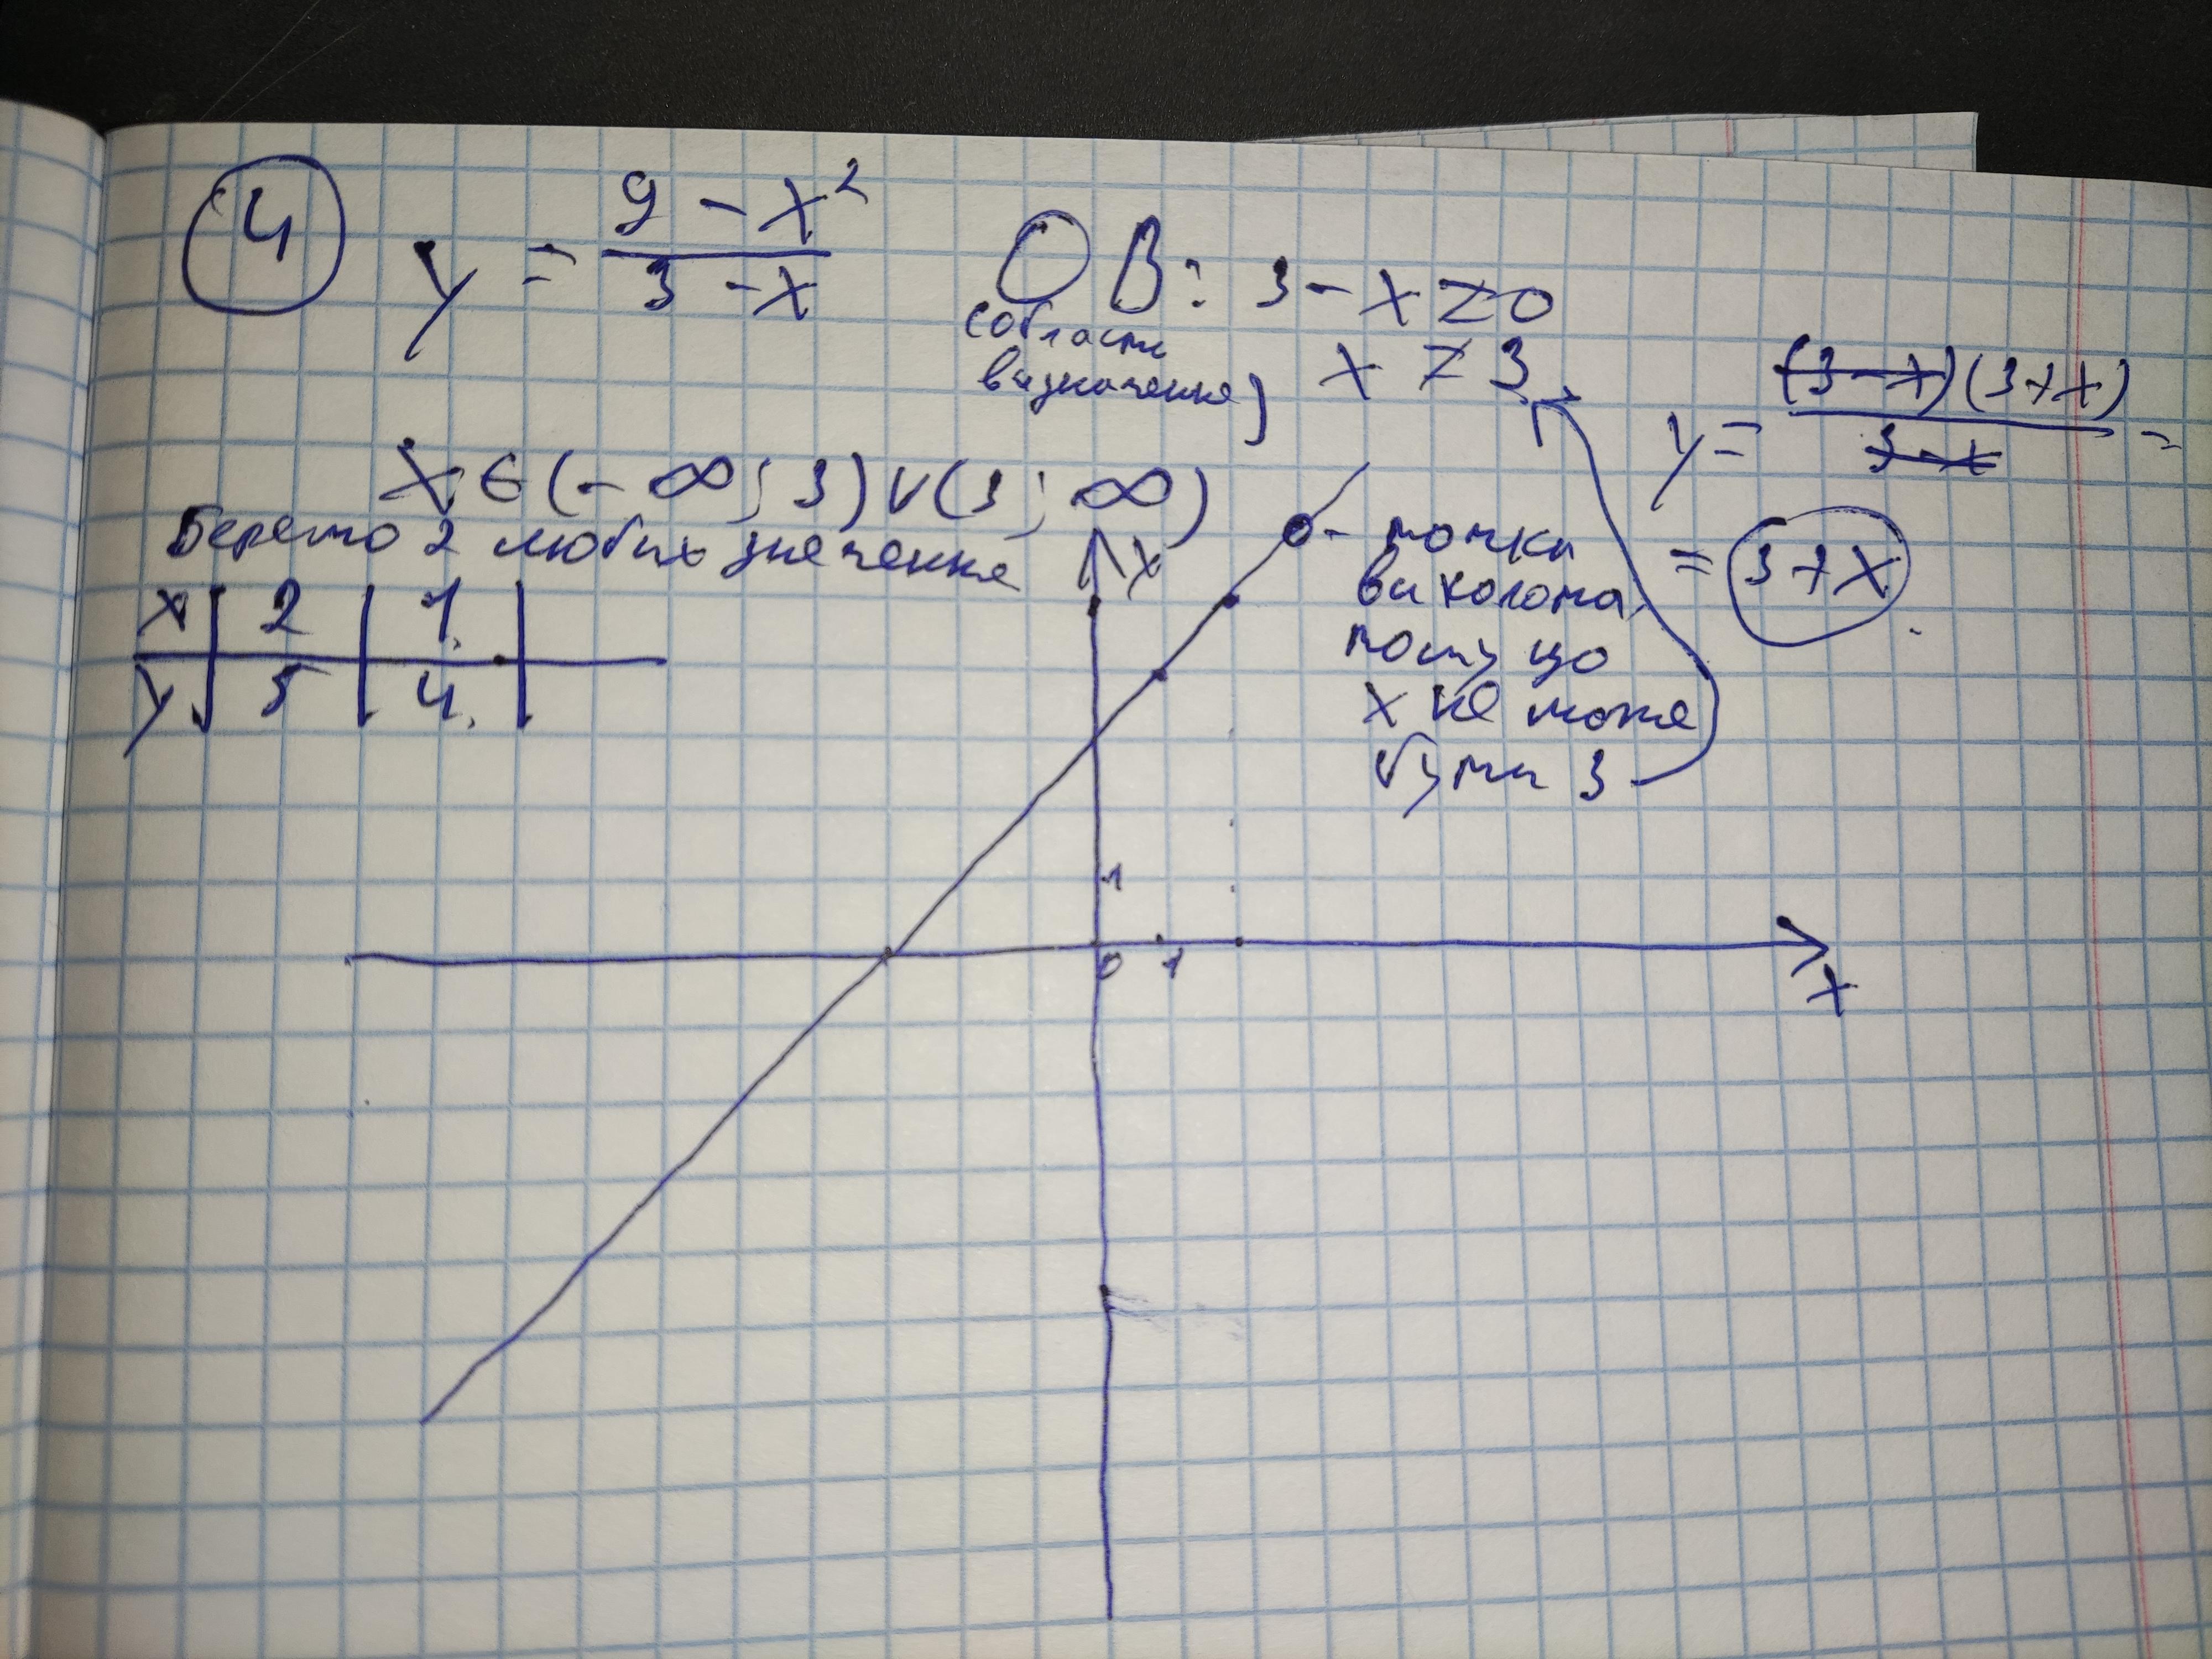 4
y = 9 - x² / 3 - x
ОВ: 3 - x ≠ 0
(область
визначення)
x ≠ 3
y = (3 - x)(3 + x) / 3 - x =
= 3 + x
x ∈ (- ∞; 3) ∪ (3; ∞)
Беремо 2 любих значення
x | 2 | 1
y | 5 | 4
y
0 - точка
виколота,
тому що
x не може
бути 3
1
0 1
x